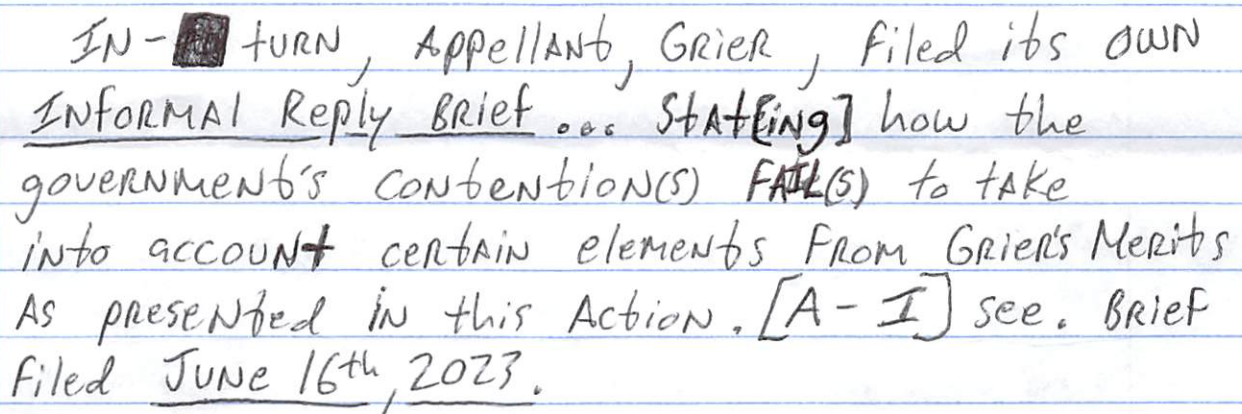 IN- turn, Appellant, Grier, filed its own
Informal Reply Brief... Stat[ing] how the
government's contention(s) FAIL(s) to take
into account certain elements from Grier's Merits
As presented in this Action. [A-I] see. Brief
filed June 16th, 2023.